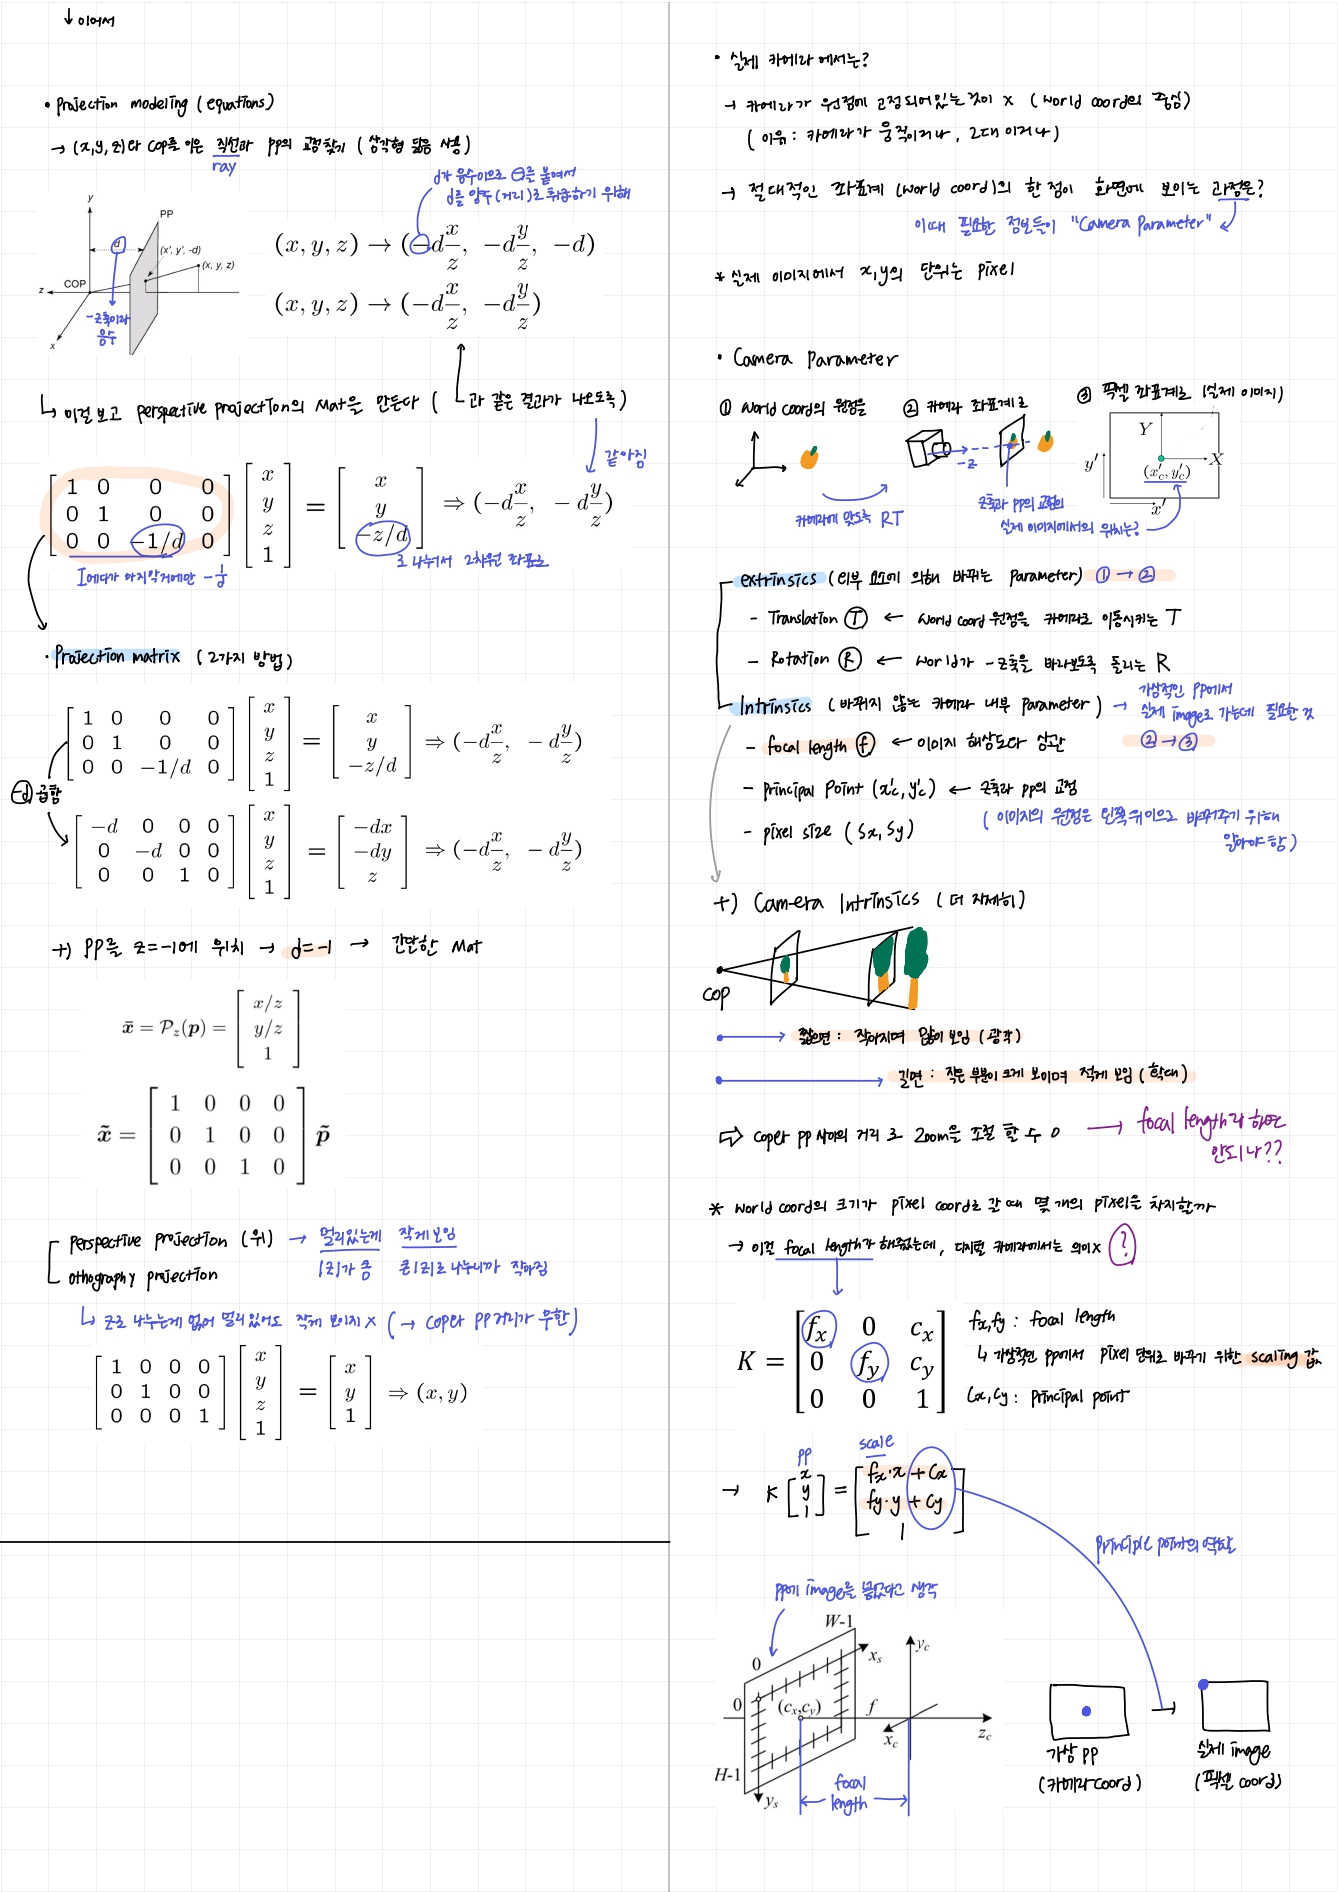 ↓ 이어서
• Projection modeling (equations)
→ (x,y,z)와 COP를 이은 직선과 PP의 교점찾기 (삼각형 닮음 사용)
ray
d가 음수이므로 ⊖를 붙여서
d를 양수(거리)로 취급하기 위해
y
PP
d
(x', y', -d)
(x, y, z)
COP
z
x
-z축이라
음수
(x, y, z) → (-d x/z, -d y/z, -d)
(x, y, z) → (-d x/z, -d y/z)
↳ 이걸 보고 perspective projection의 Mat을 만든다 ( 과 같은 결과가 나오도록)
같아짐
[1 0 0 0; 0 1 0 0; 0 0 -1/d 0] [x; y; z; 1] = [x; y; -z/d] ⇒ (-d x/z, -d y/z)
I에다가 마지막거에만 -1/d
로 나눠서 2차원 좌표로
• Projection matrix (2가지 방법)
[1 0 0 0; 0 1 0 0; 0 0 -1/d 0] [x; y; z; 1] = [x; y; -z/d] ⇒ (-d x/z, -d y/z)
-d 곱함
[-d 0 0 0; 0 -d 0 0; 0 0 1 0] [x; y; z; 1] = [-dx; -dy; z] ⇒ (-d x/z, -d y/z)
+) PP를 z=-1에 위치 → d=-1 → 간단한 Mat
x̄ = P_z(p) = [x/z; y/z; 1]
x̃ = [1 0 0 0; 0 1 0 0; 0 0 1 0] p̃
Perspective projection (위) → 멀리있는게 작게보임
|z|가 큼 큰|z|로 나누니까 작아짐
othography projection
↳ z로 나누는게 없어 멀리 있어도 작게 보이지 x (→ COP와 PP거리가 무한)
[1 0 0 0; 0 1 0 0; 0 0 0 1] [x; y; z; 1] = [x; y; 1] ⇒ (x, y)
• 실제 카메라에서는?
→ 카메라가 원점에 고정되어있는것이 x (world coord의 중심)
(이유: 카메라가 움직이거나, 2대 이거나)
→ 절대적인 좌표계(world coord)의 한 점이 화면에 보이는 과정은?
이때 필요한 정보들이 "Camera Parameter"
* 실제 이미지에서 x,y의 단위는 pixel
• Camera Parameter
① World coord의 원점을
② 카메라 좌표계로
③ 픽셀 좌표계로 (실제 이미지)
-z
Y
X
y'
(x'c, y'c)
x'
카메라에 맞도록 RT
z축과 PP의 교점의
실제 이미지에서의 위치는?
extrinsics (외부 요소에 의해 바뀌는 parameter) ①→②
- Translation (T) ← world coord 원점을 카메라로 이동시키는 T
- Rotation (R) ← world가 -z축을 바라보도록 돌리는 R
Intrinsics (바뀌지 않는 카메라 내부 parameter) → 가상적인 PP에서
실제 image로 가는데 필요한 것
②→③
- focal length (f) ← 이미지 해상도와 상관
- principal point (x'c, y'c) ← z축과 PP의 교점
- pixel size (Sx, Sy)
(이미지의 원점은 왼쪽위이므로 바꿔주기 위해
알아야 함)
+) Camera Intrinsics (더 자세히)
COP
짧으면: 작아지며 많이 보임 (광각)
길면: 작은 부분이 크게 보이며 적게 보임 (확대)
⇨ COP와 PP 사이의 거리로 Zoom을 조절 할 수 o → focal length라 하면
안되나??
* World coord의 크기가 pixel coord로 갈 때 몇 개의 pixel을 차지할까
→ 이걸 focal length가 해줬었는데, 디지털 카메라에서는 의미x (?)
K = [fx 0 cx; 0 fy cy; 0 0 1]
fx,fy: focal length
↳ 가상적인 PP에서 pixel 단위로 바꾸기 위한 scaling 값
Cx,Cy: principal point
PP
scale
→ K [x; y; 1] = [fx·x + Cx; fy·y + Cy; 1]
principle point의 역할
PP에 image를 붙였다고 생각
W-1
0
xs
yc
0
(cx,cy)
f
zc
xc
H-1
ys
focal
length
가상 PP
(카메라 coord)
실제 image
(픽셀 coord)